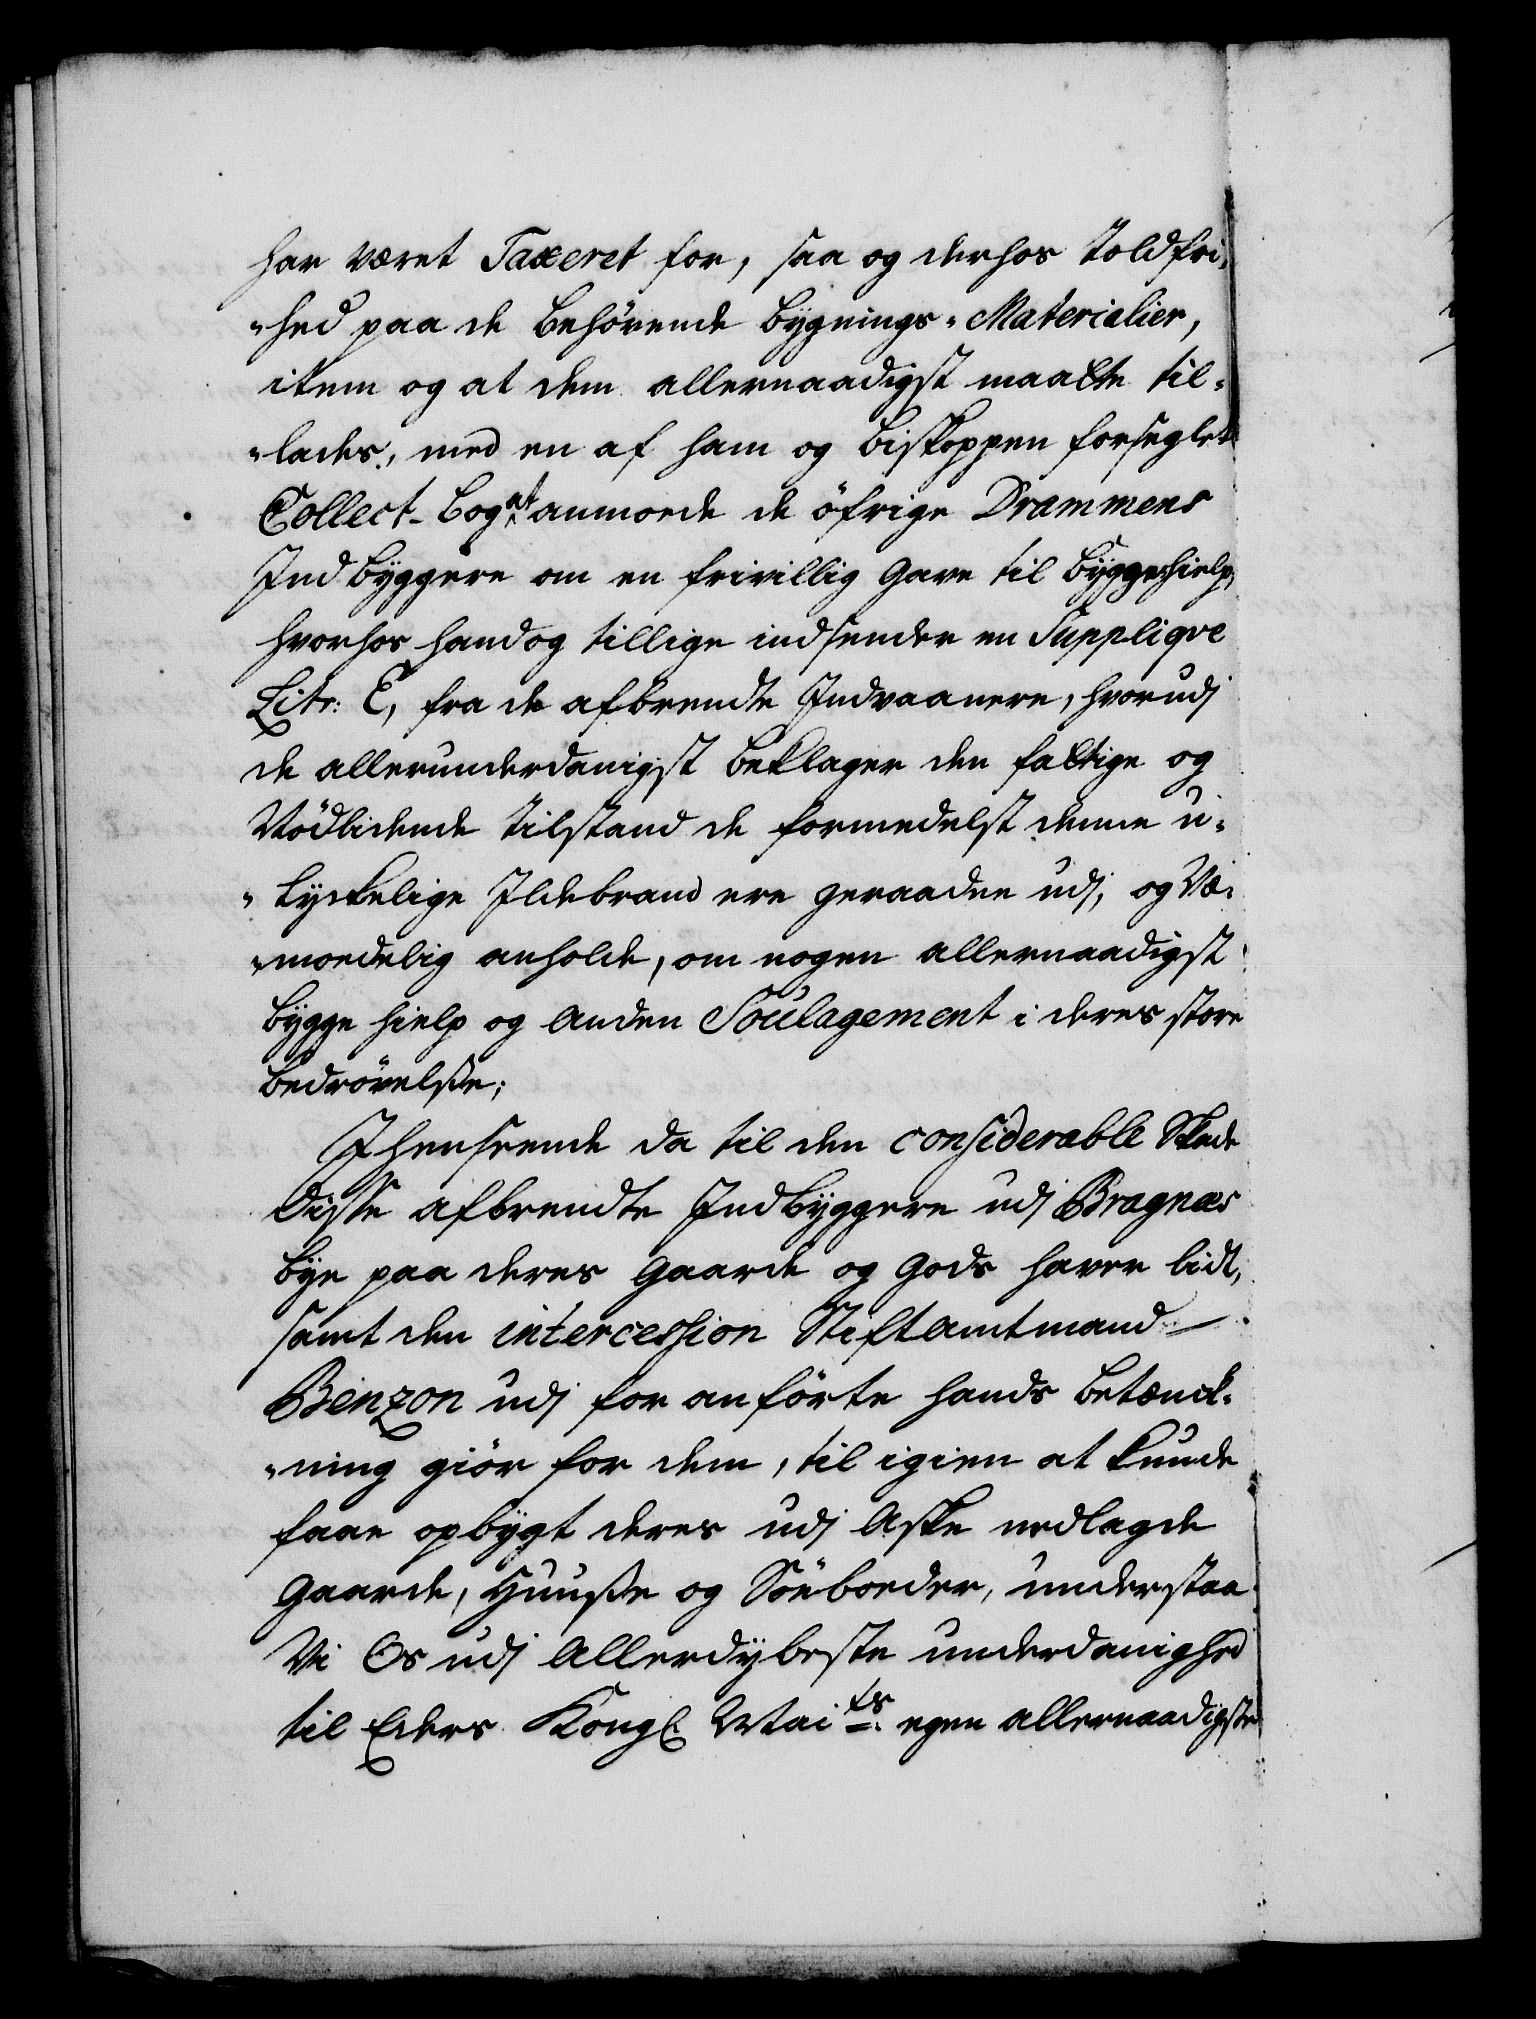 har været Taxeret for, saa og derhos Toldfri-
-hed paa de behörende bÿgnings-Materialier,
item og at dem allernaadigst maatte til-
-lades, med en af ham og biskoppen forseglet
Collect-bog at anmode de öfrige Drammens
Indbÿggere om en frivillig gave til bÿggehielp,
hvorhos hand og tillige indsender en Suppliqve
Litr: C, fra de afbrendte Indvaanere, hvorudj
de allerunderdanigst beklager den fattige og
Nödlidende tilstand de formedelst denne u-
-lyckelige Ildebrand ere geraaden udj, og Væ-
-moedelig anholde, om nogen allernaadigst
bÿgge hielp og anden Soulagement i deres store
bedrövelsse;
I henseende da til den considerable Skade
disse afbrendte Indbÿggere udj Bragnæs
bÿe paa deres gaarde og gods haver lidt,
samt den intercession Stiftamtmand
Benzon udj for anförte hands betænck-
-ning giör for dem, til igien at kunde
faae opbÿgt deres udj Aske nedlagde
gaarde, Huusse og Söeboeder, understaa
Vi Os udj Allerdÿbeste underdanighed
til Eders Kongl Maits: egen allernaadigste